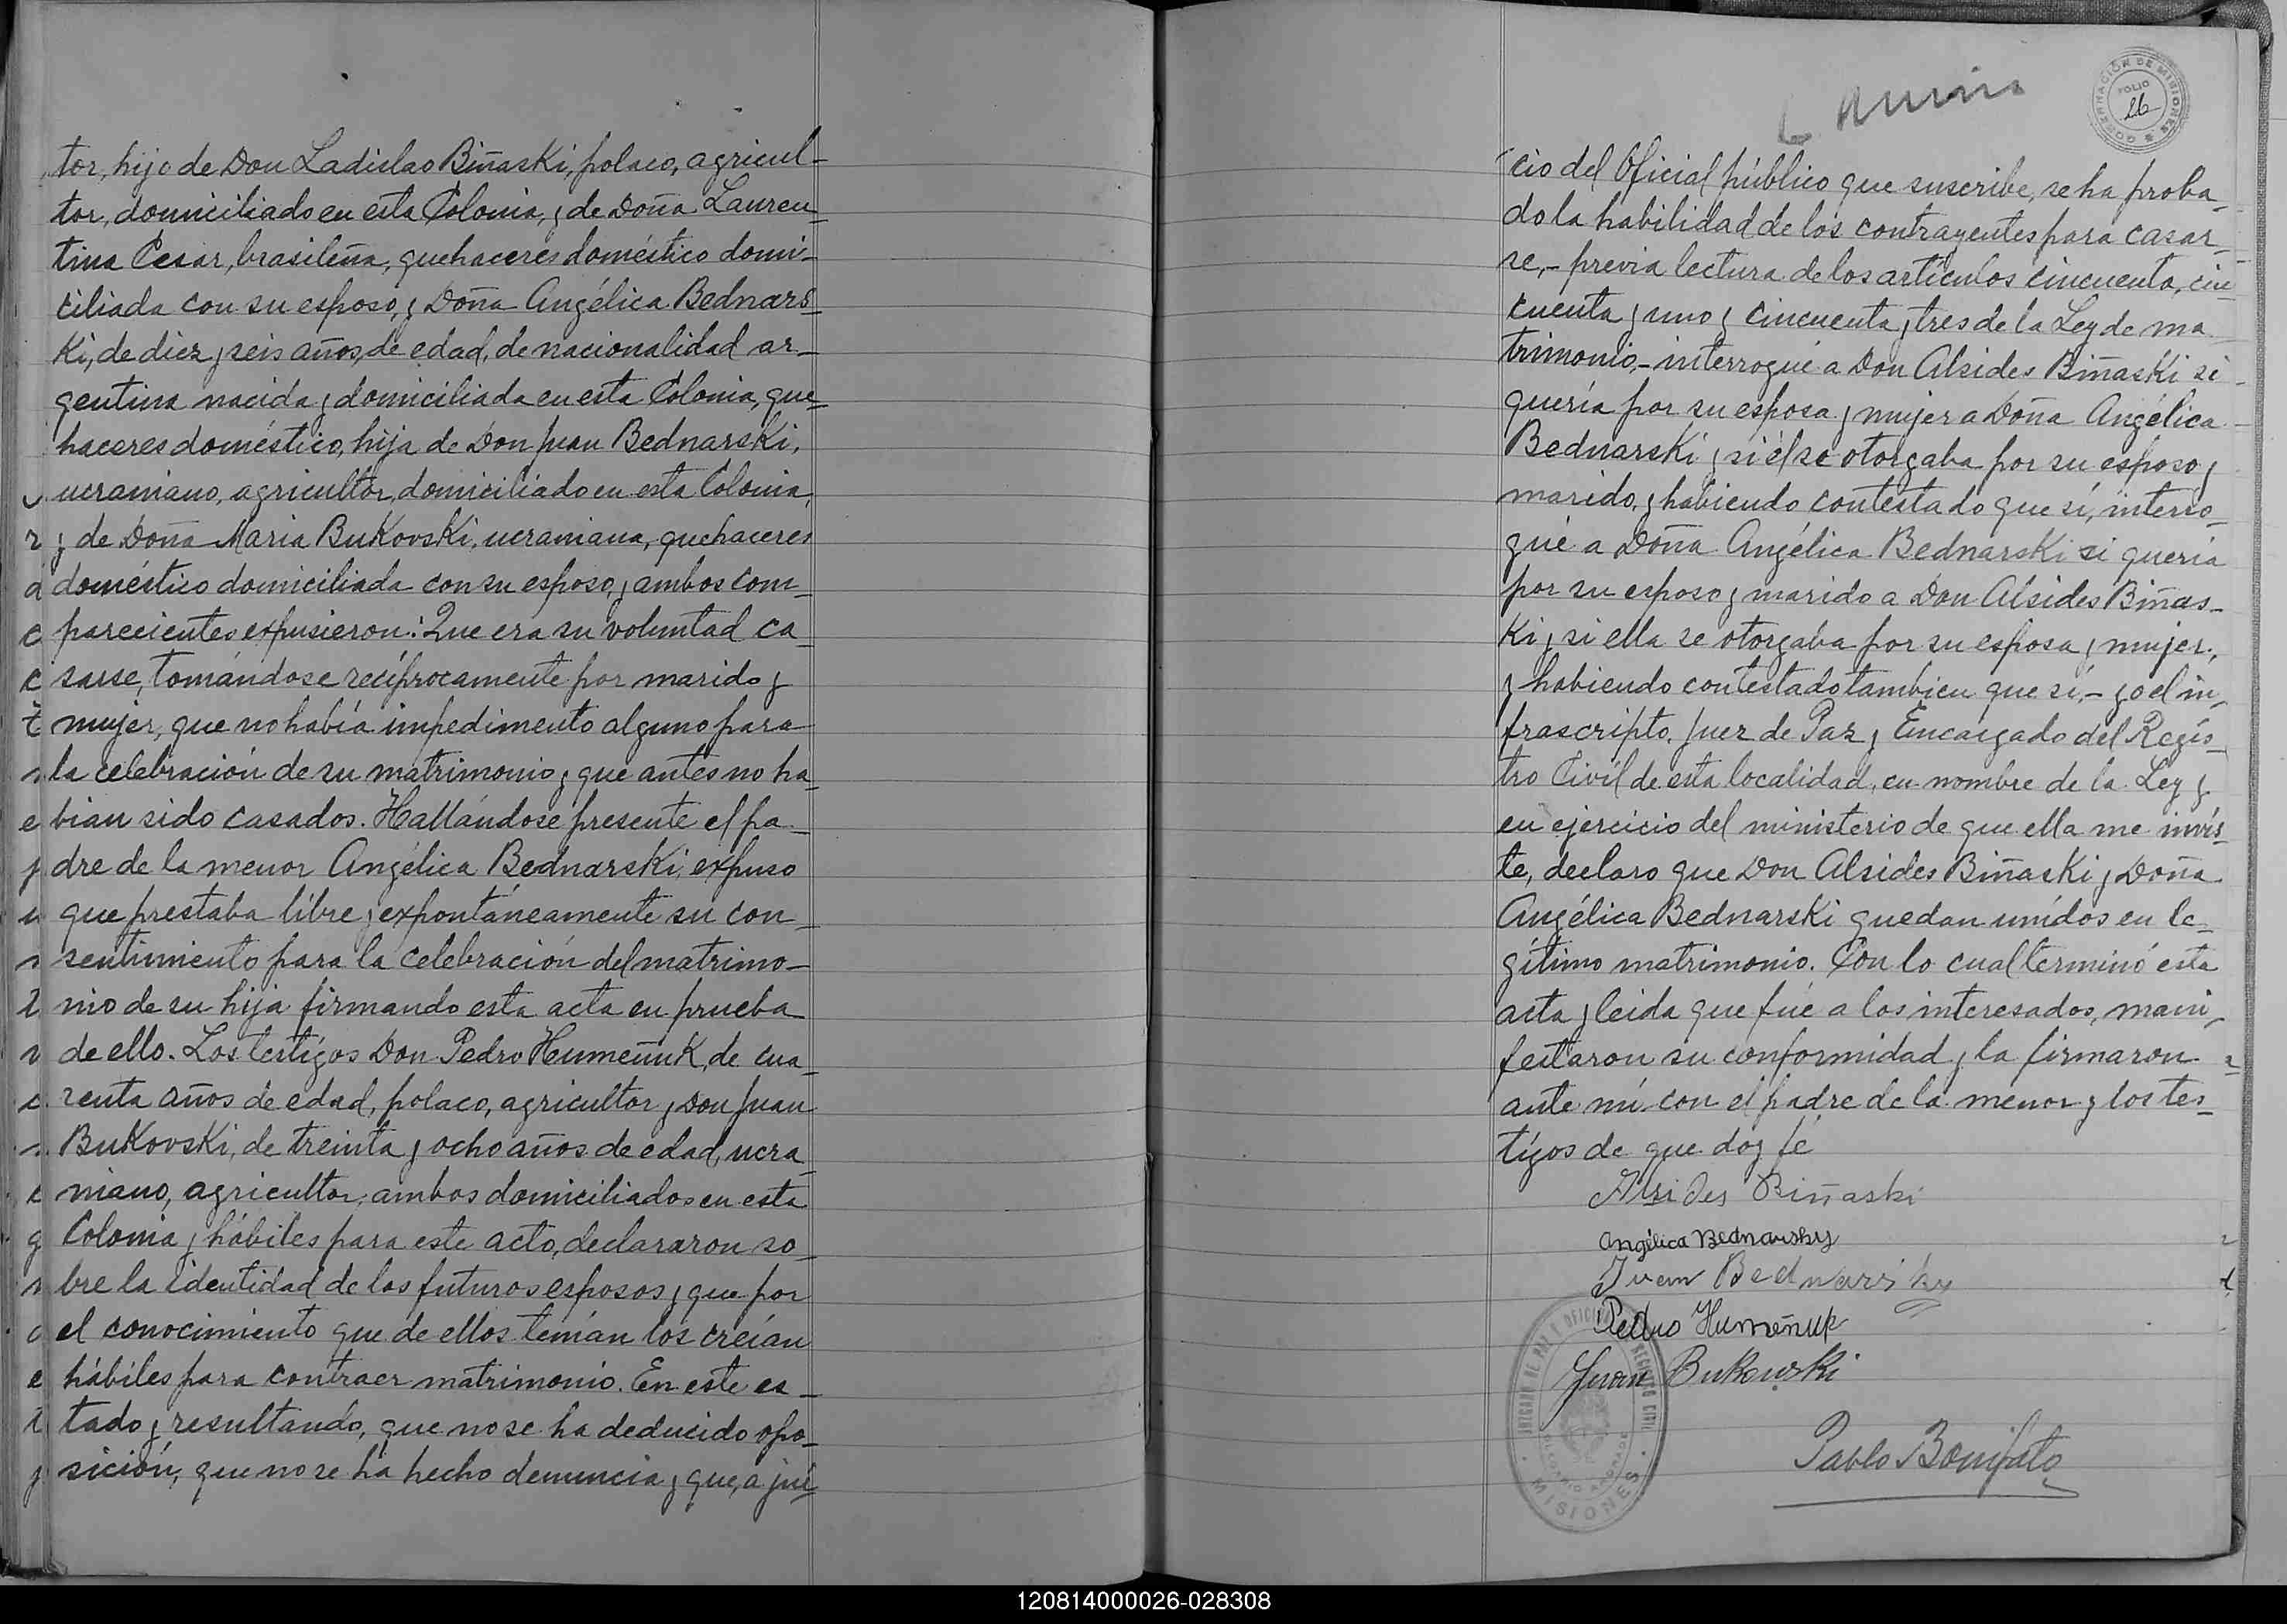 tor, hijo de Don Ladislao Biñaski, polaco, agricul-
tor, domiciliado en esta Colonia, y de Doña Lauren-
tina Cesar, brasileña, quehaceres doméstico domi-
ciliada con su esposo, y Doña Angélica Bednars-
Ki, de diez y seis años, de edad, de nacionalidad ar-
gentina nacida y domiciliada en esta Colonia, que-
haceres doméstico, hija de Don Juan Bednarski,
ucraniano, agricultor, domiciliado en esta Colonia,
y de Doña Maria Bukovski, ucraniana, quehaceres
doméstico domiciliada con su esposo, y ambos com-
parecientes expusieron: Que era su voluntad ca-
sarse, tomándose recíprocamente por marido y
mujer, que no había impedimento alguno para
la celebración de su matrimonio y que antes no ha-
bian sido casados. Hallándose presente el pa-
dre de la menor Angélica Bednarski, expuso
que prestaba libre y expontáneamente su con-
sentimiento para la celebración del matrimo-
nio de su hija firmando esta acta en prueba
de ello. Los testígos Don Pedro Humeñuk, de cua-
renta años de edad, polaco, agricultor y Don Juan
Bukovski, de treinta y ocho años de edad, ucra-
niano, agricultor, ambos domiciliados en esta
Colonia y hábiles para este acto, declararon so-
bre la identidad de los futuros esposos y que por
el conocimiento que de ellos tenían los creían
hábiles para contraer matrimonio. En este es-
tado y resultando, que no se ha deducido opo-
sición, que no se ha hecho denuncia y que, a jui-
GOBERNACIÓN DE MISIONES
FOLIO
26
cio del Oficial público que suscribe, se ha proba-
do la habilidad de los contrayentes para casar-
se,- previa lectura de los artículos cincuenta, cin-
cuenta y uno y cincuenta y tres de la Ley de ma-
trimonio,- interrogué a Don Alsides Biñaski si
quería por su esposa y mujer a Doña Angélica
Bednarski y si él se otorgaba por su esposo y
marido, y habiendo contestado que sí, interro-
gué a Doña Angélica Bednarski si quería
por su esposo y marido a Don Alsides Biñas-
Ki y si ella se otorgaba por su esposa y mujer,
y habiendo contestado tambien que sí,- yo el in-
frascripto, Juez de Paz y Encargado del Regís-
tro Civíl de esta localidad, en nombre de la Ley y
en ejercicio del ministerio de que ella me invís-
te, declaro que Don Alsides Biñaski y Doña
Angélica Bednarski quedan unídos en le-
gítimo matrimonio. Con lo cual terminó esta
acta y leida que fué a los interesados, mani-
festaron su conformidad y la firmaron
ante mí con el padre de la menor y los tes-
tígos de que doy fé
Alsides Biñaski
Angélica Bednarsky
Juan Bednarsky
Pedro Humeñuk
Juan Bukowski
Pablo Bonifato
MISIONES
120814000026-028308